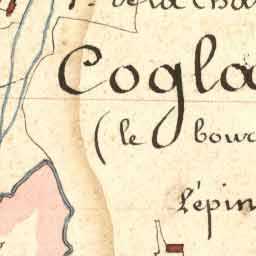 de la Cha
Cogla
(le bour
L'épin